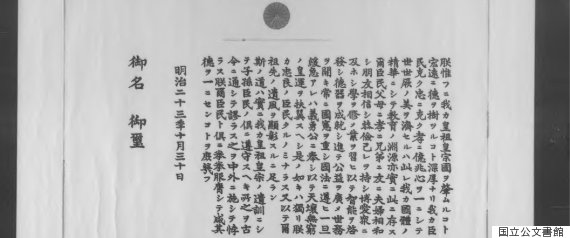 朕惟フニ我カ皇祖皇宗國ヲ肇ムルコト
宏遠ニ德ヲ樹ツルコト深厚ナリ我カ臣
民克ク忠ニ克ク孝ニ億兆心ヲ一ニシテ
世世厥ノ美ヲ濟セルハ此レ我カ國體ノ
精華ニシテ敎育ノ淵源亦實ニ此ニ存ス
爾臣民父母ニ孝ニ兄弟ニ友ニ夫婦相和
シ朋友相信シ恭儉己レヲ持シ博愛衆ニ
及ホシ學ヲ修メ業ヲ習ヒ以テ智能ヲ啓
發シ德器ヲ成就シ進テ公益ヲ廣メ世務
ヲ開キ常ニ國憲ヲ重シ國法ニ遵ヒ一旦
緩急アレハ義勇公ニ奉シ以テ天壤無窮
ノ皇運ヲ扶翼スヘシ是ノ如キハ獨リ朕
カ忠良ノ臣民タルノミナラス又以テ爾
祖先ノ遺風ヲ顯彰スルニ足ラン
斯ノ道ハ實ニ我カ皇祖皇宗ノ遺訓ニシ
テ子孫臣民ノ俱ニ遵守スヘキ所之ヲ古
今ニ通シテ謬ラス之ヲ中外ニ施シテ悖
ラス朕爾臣民ト俱ニ拳拳服膺シテ咸其
德ヲ一ニセンコトヲ庶幾フ
明治二十三年十月三十日
御名 御璽
国立公文書館